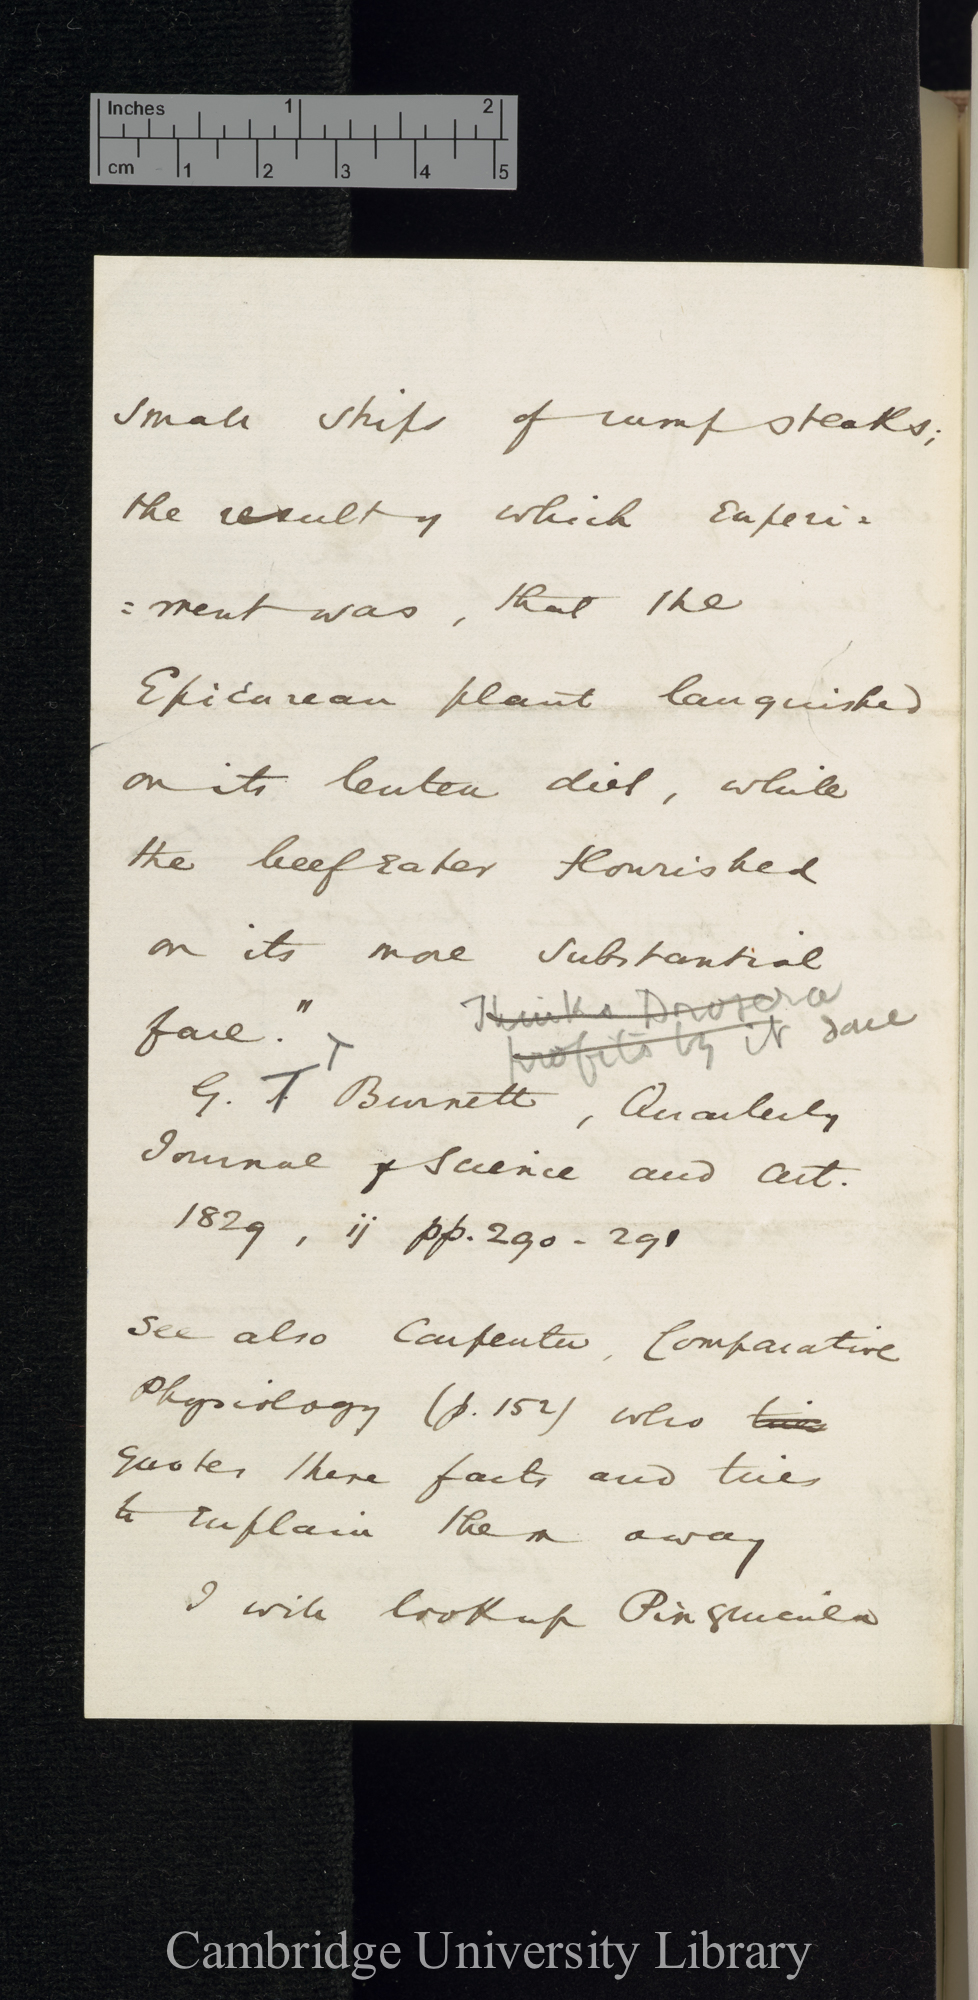 Inches 1 2
cm 1 2 3 4 5
small strips of rump steaks;
the result of which experi=
=ment was, that the
Epicurean plant languished
on its lenten diet, while
the beefeater flourished
on its more substantial
fare."
Thinks Drosera
profits by it
G. T Burnett, Quarterly
Journal of Science and Art.
1829, ij pp. 290 - 291
See also Carpenter, Comparative
Physiology (p. 152) who tries
quotes these facts and tries
to explain them away
I will look up Pinguicula
Cambridge University Library